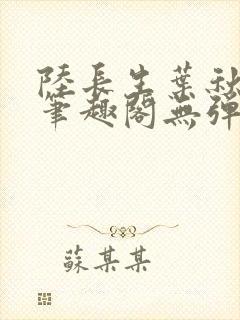 陸長生葉秋
筆趣閣無彈
蘇某某